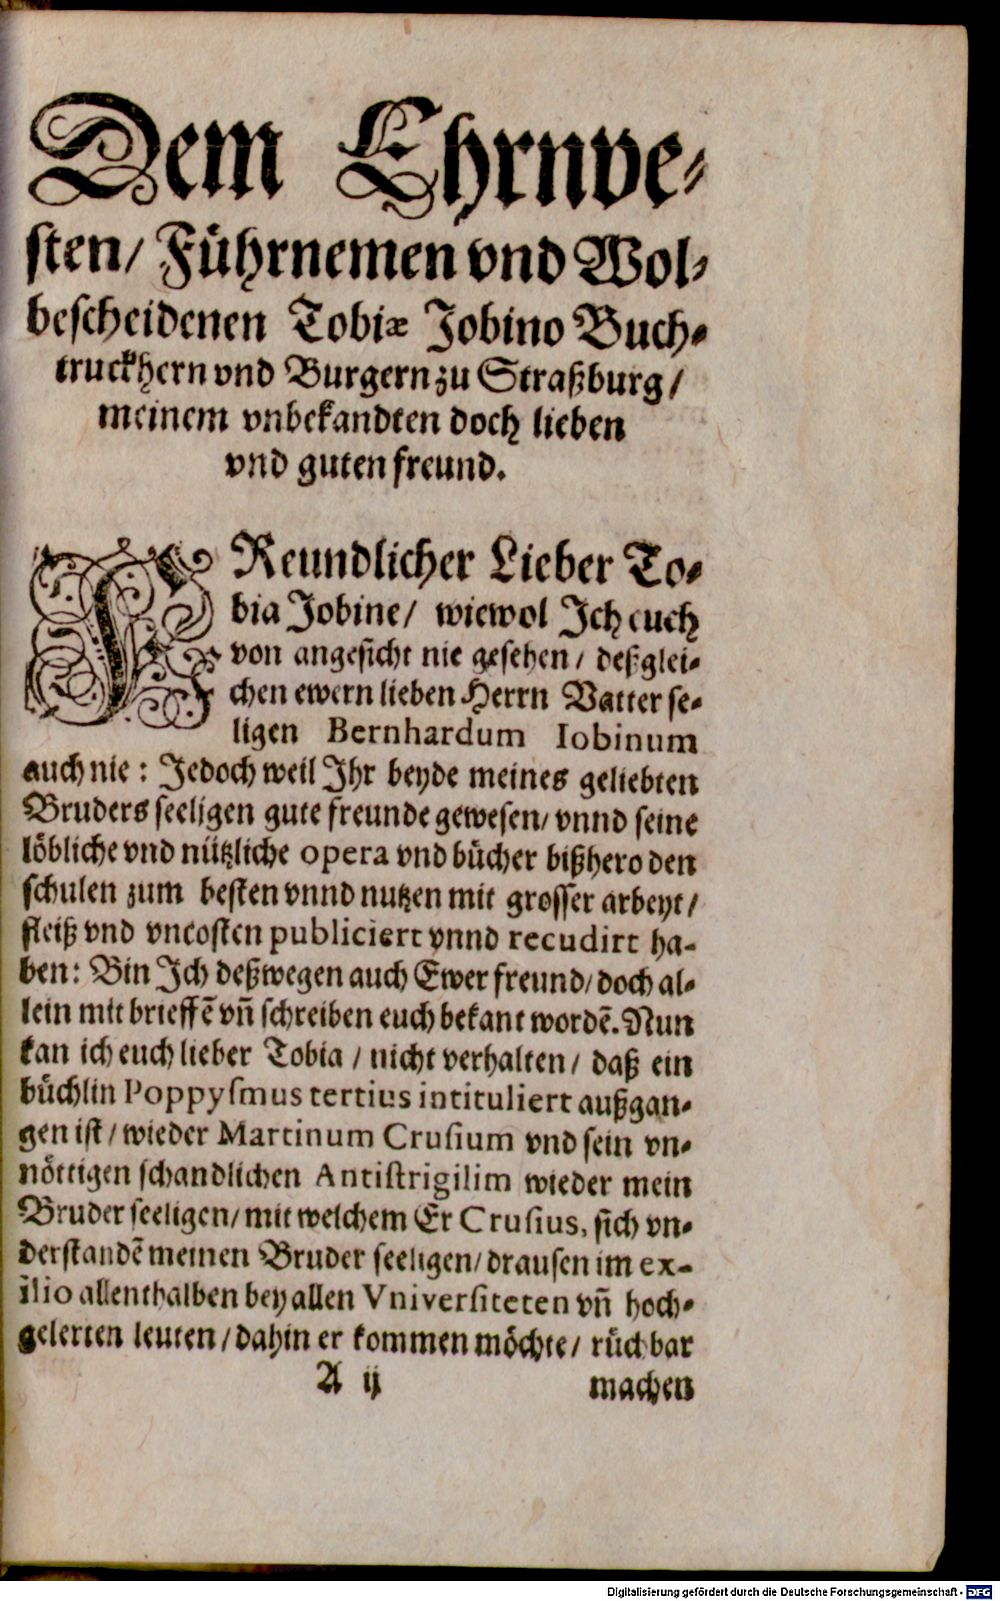 Dem Ehrnve-
sten/ Führnemen vnd Wol-
bescheidenen Tobiæ Jobino Buch-
truckhern vnd Burgern zu Straßburg/
meinem vnbekandten doch lieben
vnd guten freund.
FReundlicher Lieber To-
bia Jobine/ wiewol Ich euch
von angesicht nie gesehen/ deßglei-
chen ewern lieben Herrn Vatter se-
ligen Bernhardum Iobinum
auch nie: Jedoch weil Ihr beyde meines geliebten
Bruders seeligen gute freunde gewesen/ vnnd seine
löbliche vnd nützliche opera vnd bücher bißhero den
schulen zum besten vnnd nutzen mit grosser arbeyt/
fleiß vnd vncosten publiciert vnnd recudirt ha-
ben: Bin Ich deßwegen auch Ewer freund/ doch al-
lein mit brieffē vñ schreiben euch bekant wordē. Nun
kan ich euch lieber Tobia / nicht verhalten/ daß ein
büchlin Poppysmus tertius intituliert außgan-
gen ist/ wieder Martinum Crusium vnd sein vn-
nöttigen schandlichen Antistrigilim wieder mein
Bruder seeligen/ mit welchem Er Crusius, sich vn-
derstandē meinen Bruder seeligen/ drausen im ex-
ilio allenthalben bey allen Vniversiteten vñ hoch-
gelerten leuten/ dahin er kommen möchte/ rüchbar
A ij machen
Digitalisierung gefördert durch die Deutsche Forschungsgemeinschaft - DFG